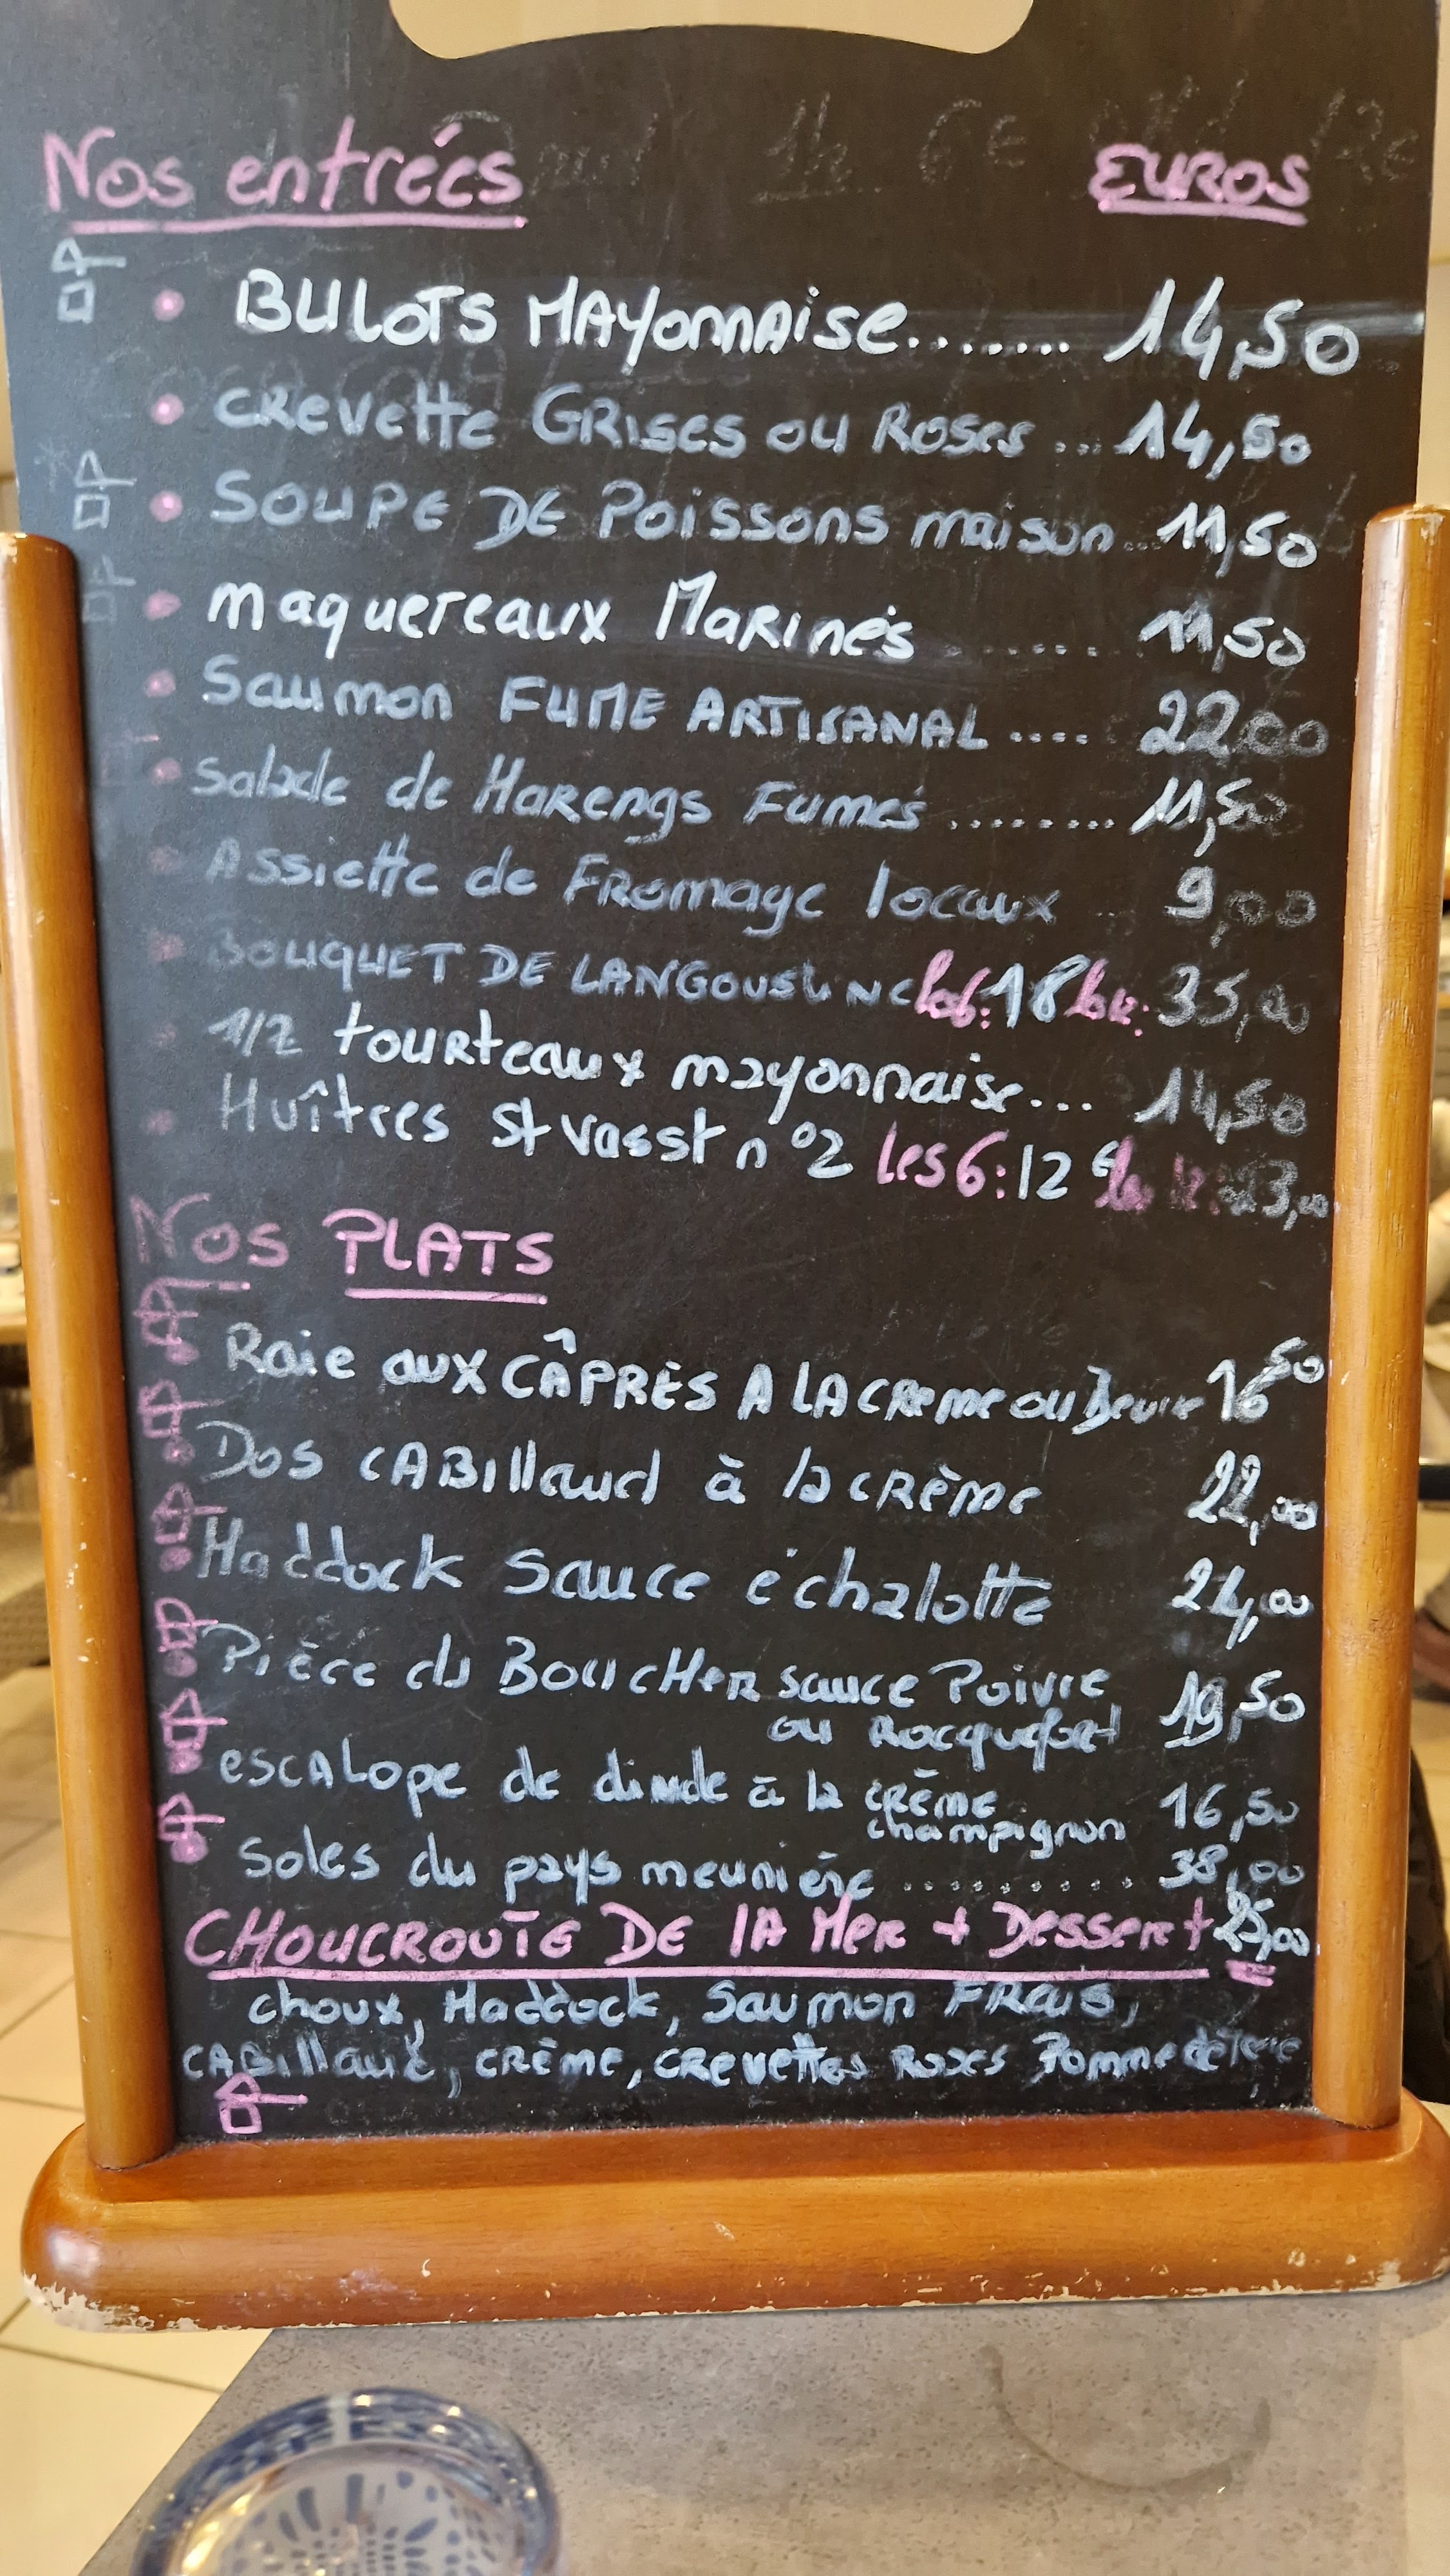 Nos entrées EUROS
BULOTS MAYonnAise........ 14,50
CREVette GRises ou Roses ... 14,50
SOUPE DE Poissons maison... 11,50
maquereaux MaRinés ....... 11,50
Saumon FUME ARTISANAL .... 22,00
Salade de HaRengs Fumés ........ 11,50
Assiette de FRomage locaux .. 9,00
BOUQUET DE LANGOUSTINE les 6: 18 les 12: 35,00
1/2 touRteaux mayonnaise... 14,50
Huîtres St Vasst n°2 les 6: 12€ les 12: 23,00
Nos PLATS
Raie aux CÂPRÈS A LA CReme ou Beurre 16 50
Dos CABillaud à la CRème 22,00
Haddock Sauce échalotte 24,00
Pièce du BoucHeR sauce Poivre 19,50
ou Rocquefort
escALope de dinde à la crème 16,50
champignon
Soles du pays meunière .......... 38,00
CHOUCROUTE DE lA MeR + Dessert 25,00
choux, Haddock, Saumon FRais,
CABillaud, CRème, CRevettes Roses Pomme de terre